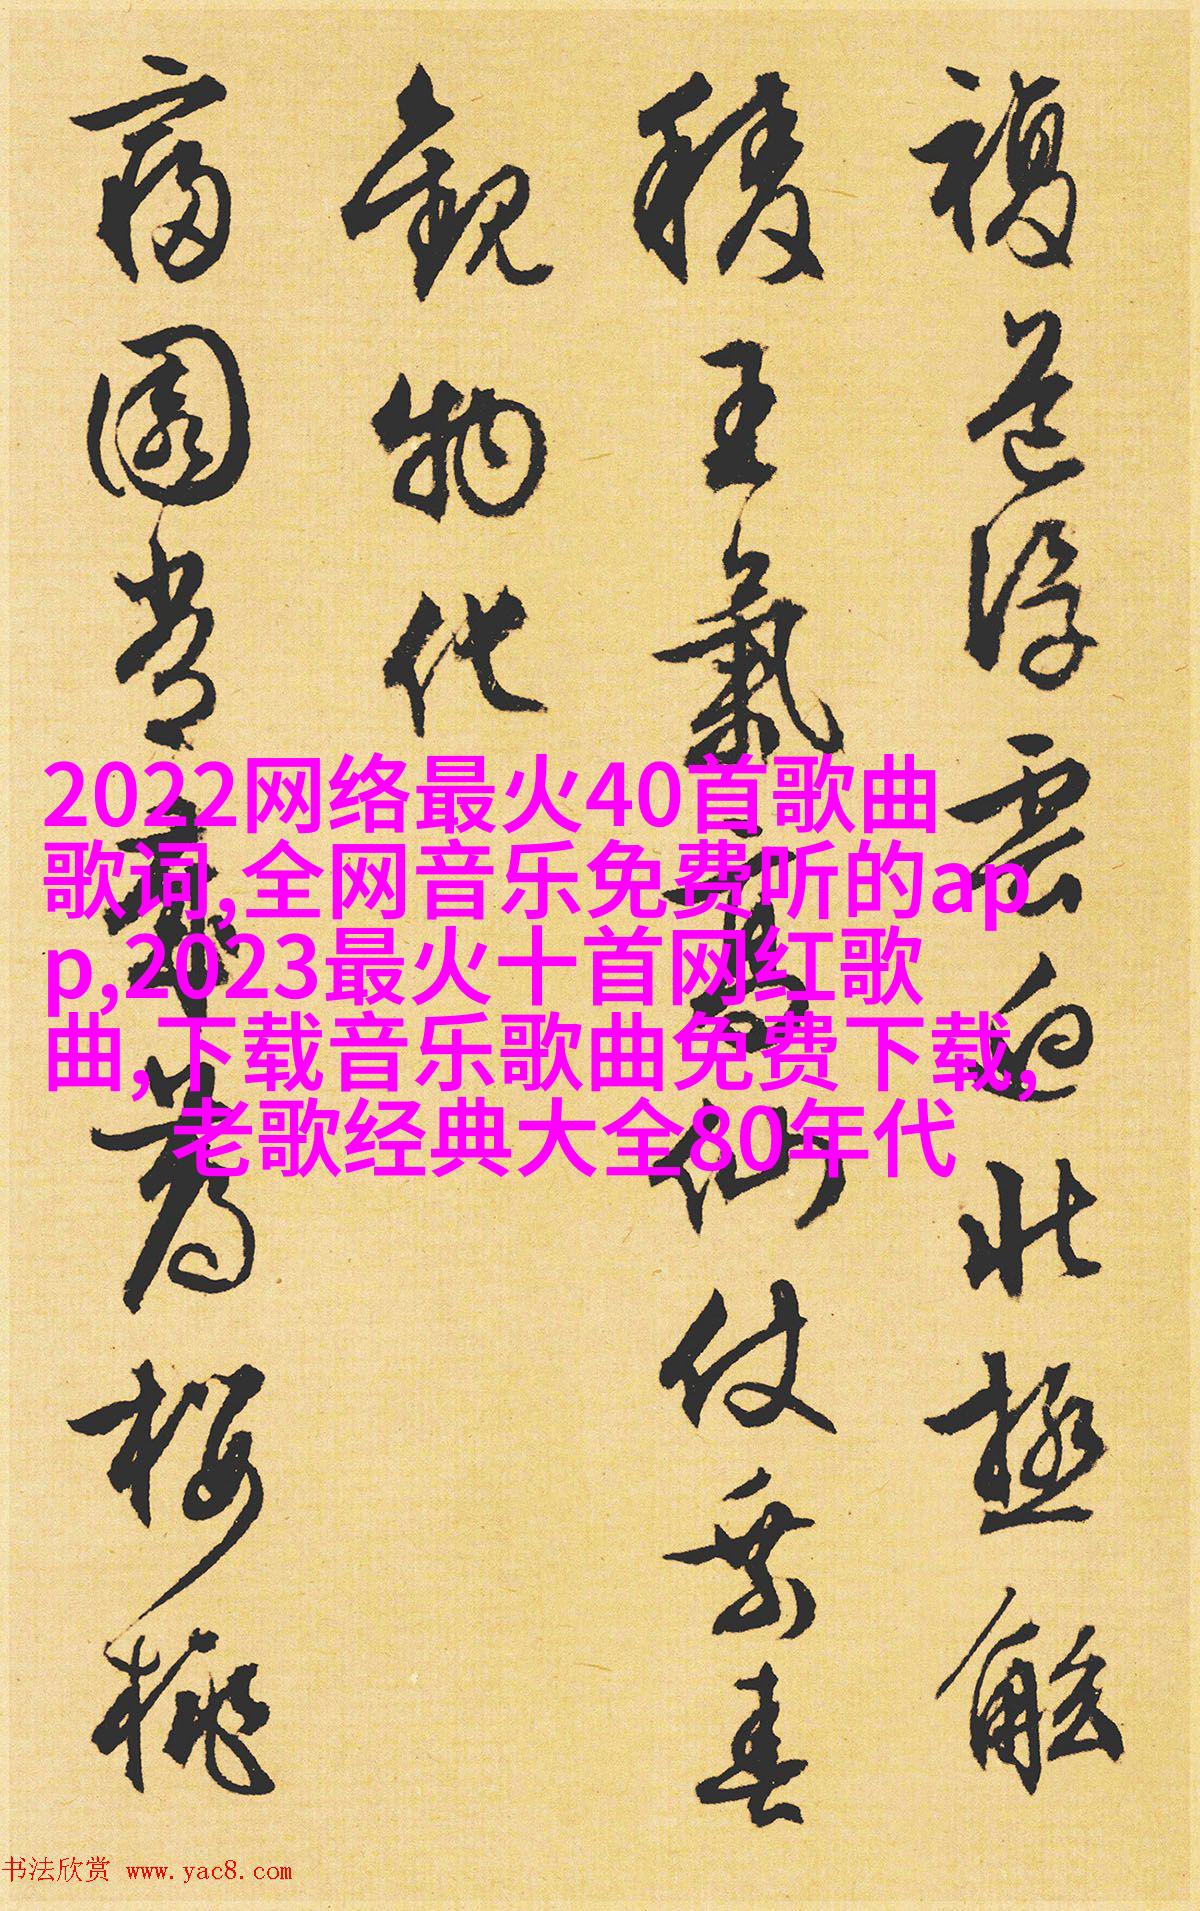 複道浮雲迥北極觚
稜王氣高仙仗乘春
觀物化
寢園常歲薦櫻桃
2022网络最火40首歌曲
歌词,全网音乐免费听的ap
p,2023最火十首网红歌
曲,下载音乐歌曲免费下载,
老歌经典大全80年代
书法欣赏 www.yac8.com